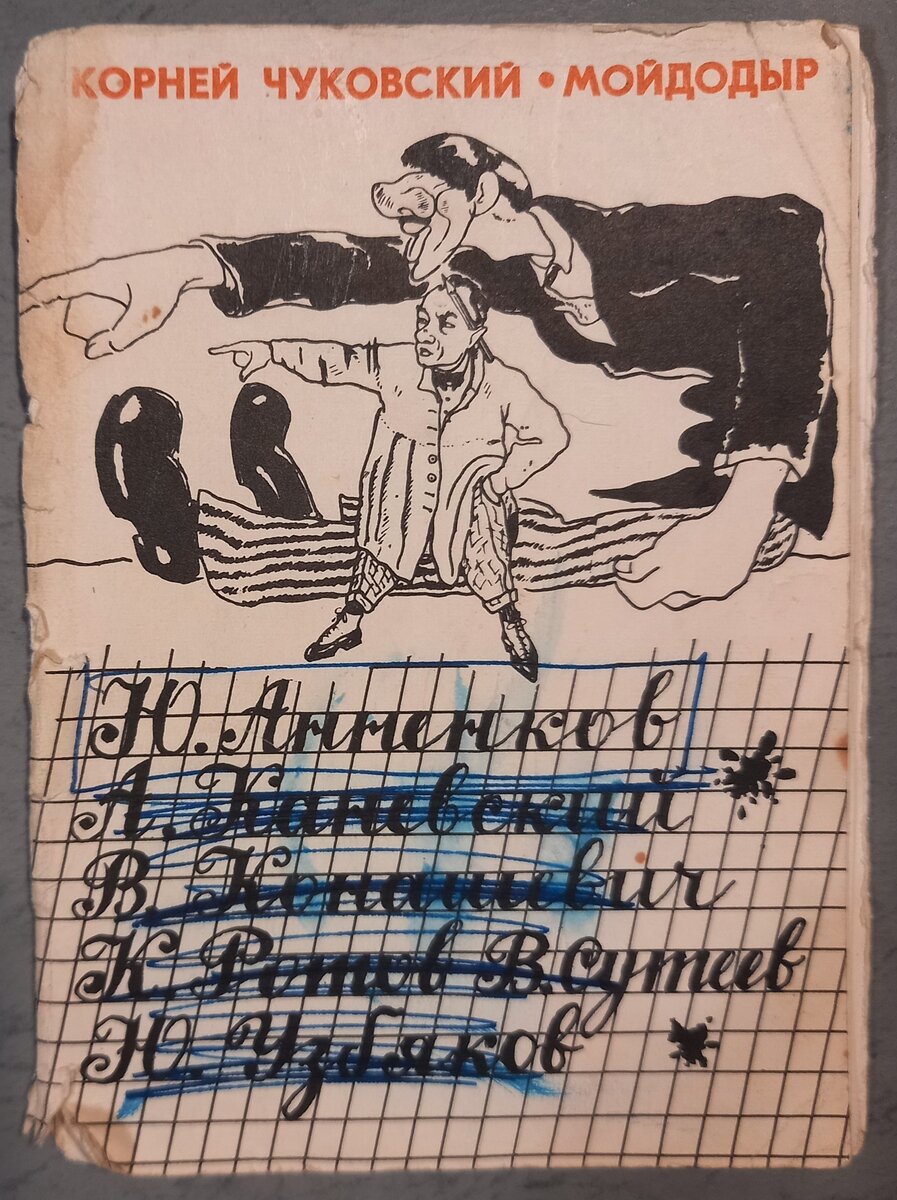 КОРНЕЙ ЧУКОВСКИЙ • МОЙДОДЫР
Ю. Анненков
А. Каневский
В. Конашевич
К. Ротов В. Сутеев
Ю. Узбяков